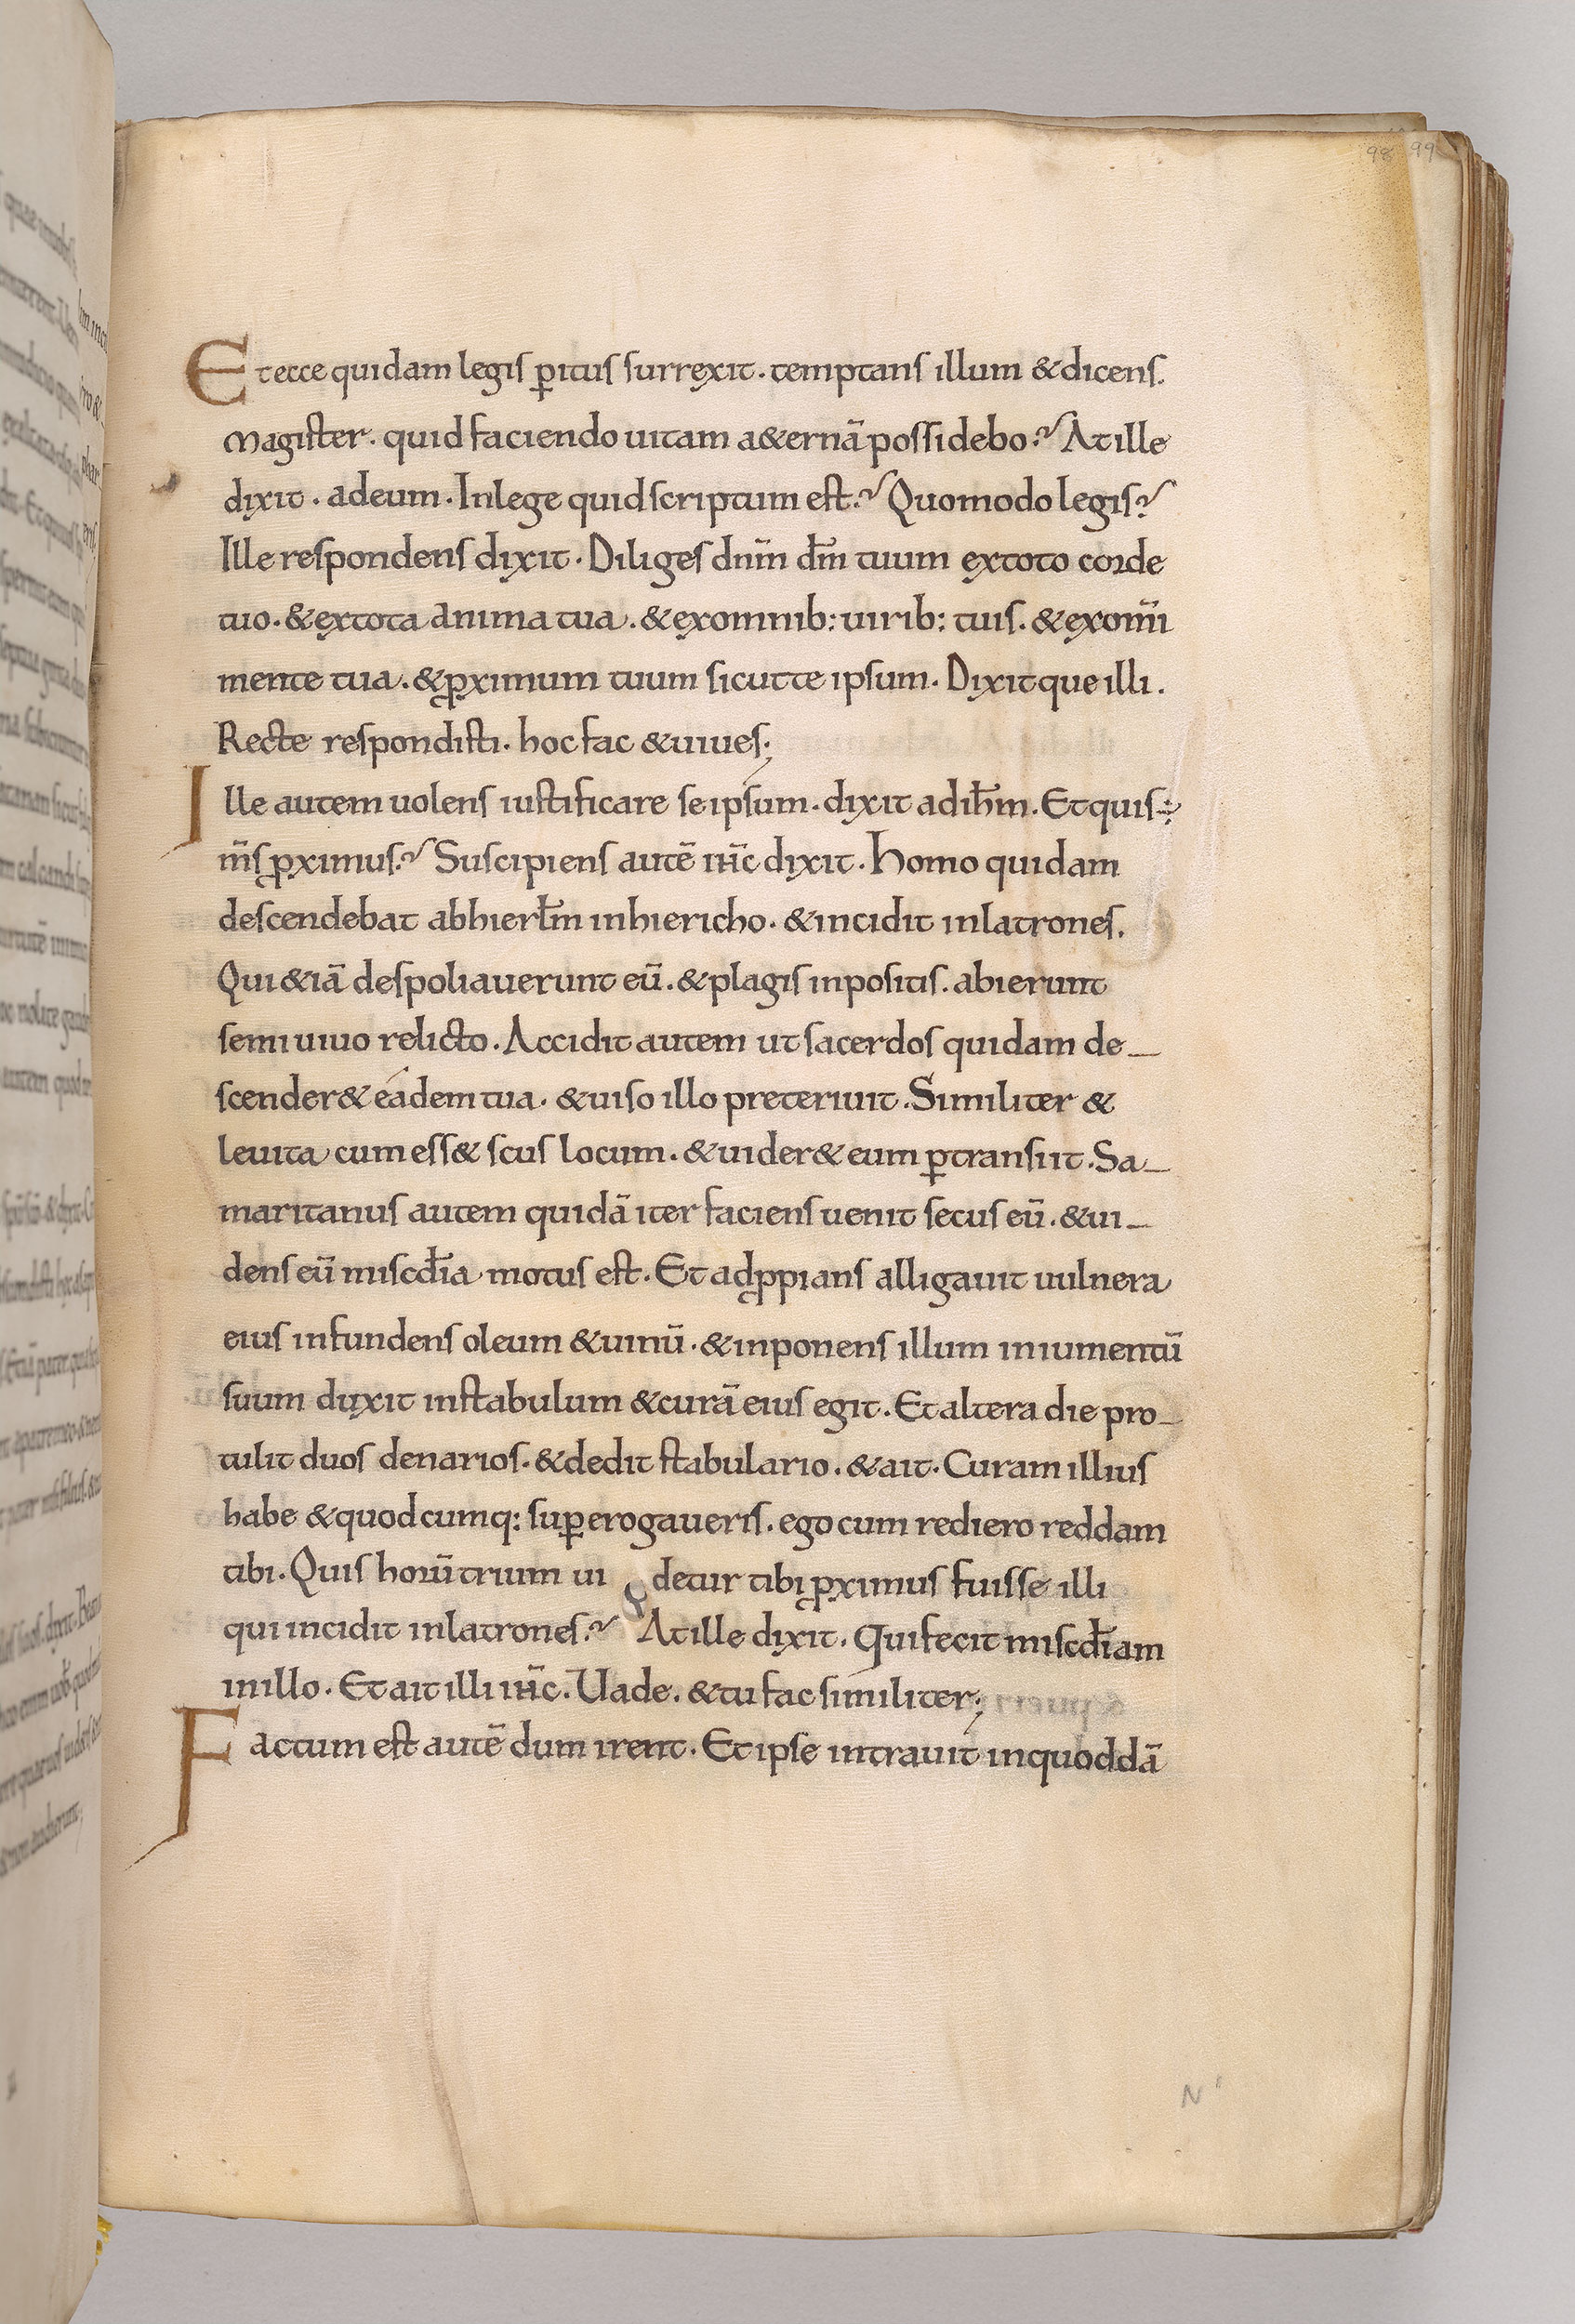 98 99
Et ecce quidam legis p̱itus surrexit. temptans illum & dicens.
Magister. quid faciendo uitam a&ernā possidebo? At ille
dixit. adeum. Inlege quid scriptum est? Quomodo legis?
Ille respondens dixit. Diliges dnm̄ dm̄ tuum extoto corde
tuo. & extota anima tua. & exomnib: uirib: tuis. & exomī
mente tua. & ꝓximum tuum sicut te ipsum. Dixitque illi.
Recte respondisti. hoc fac & uiues;
Ille autem uolens iustificare seipsum. dixit adihm̄. Et quis÷
m̄s ꝓximus? Suscipiens autē ih̄c dixit. Homo quidam
descendebat abhierlm̄ inhiericho. & incidit inlatrones.
Qui &iā despoliauerunt eū. & plagis inpositis. abierunt
semiuiuo relicto. Accidit autem ut sacerdos quidam de_
scender& eádem uia. & uiso illo preteriuit. Similiter &
leuita cum ess& scus locum. & uider& eum ꝑtransiit. Sa_
maritanus autem quidā iter faciens uenit secus eū. & ui_
dens eū miscd̄ia motus est. Et adꝓpians alligauit uulnera
eius infundens oleum & uinū. & inponens illum iniumentū
suum duxit instabulum & curā eius egit. Et altera die pro_
tulit duos denarios. & dedit stabulario. & ait. Curam illius
habe & quodcumq: suꝑerogaueris. ego cum rediero reddam
tibi. Quis horū trium ui detur tibi ꝓximus fuisse illi
qui incidit inlatrones? At ille dixit. Qui fecit miscd̄iam
inillo. Et ait illi ih̄c. Uade. & tu fac similiter;
Factum est autē dum irent. Et ipse intrauit inquoddā
N